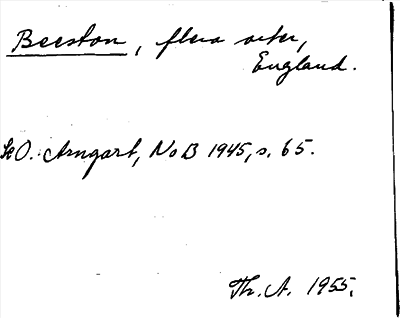 Beeston, flera orter,
England.
Se O. Arngart, NoB 1945, s. 65.
Th. A. 1955.